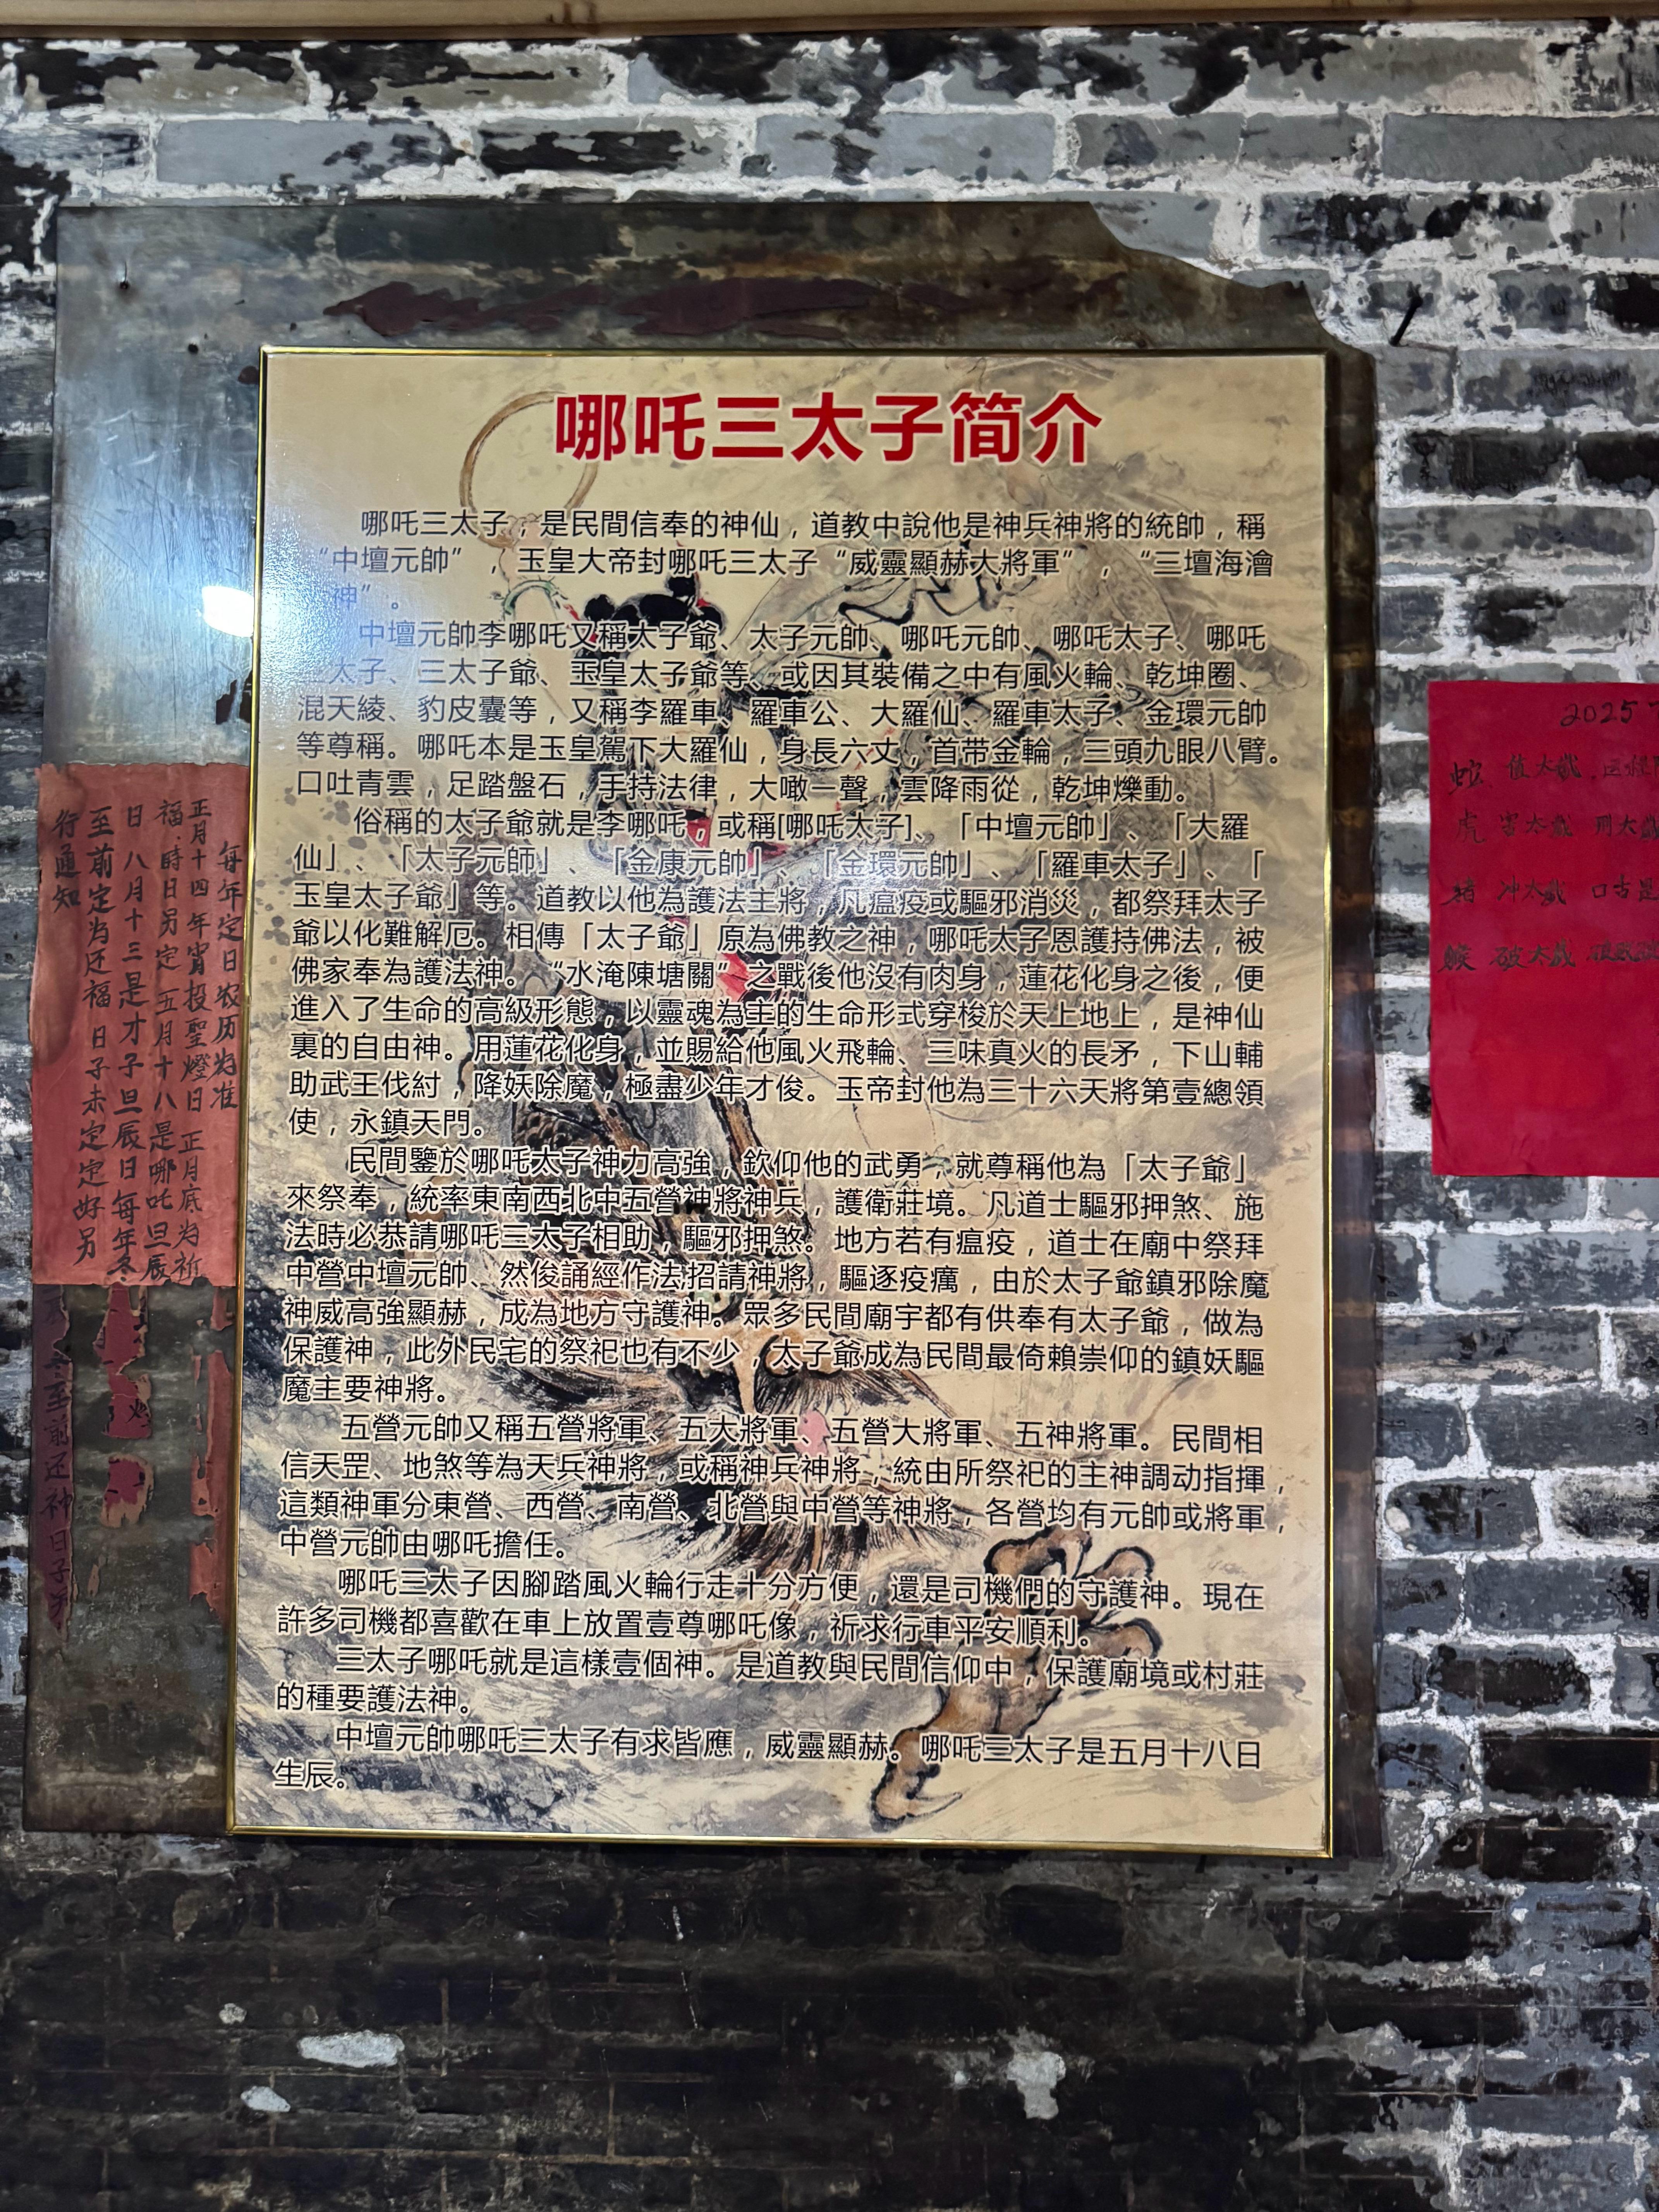 哪吒三太子简介
哪吒三太子，是民間信奉的神仙，道教中說他是神兵神將的統帥，稱
“中壇元帥”，玉皇大帝封哪吒三太子“威靈顯赫大將軍”，“三壇海澮
神”。
中壇元帥李哪吒又稱太子爺、太子元帥、哪吒元帥、哪吒太子、哪吒
三太子、三太子爺、玉皇太子爺等、或因其裝備之中有風火輪、乾坤圈、
混天綾、豹皮囊等，又稱李羅車、羅車公、大羅仙、羅車太子、金環元帥
等尊稱。哪吒本是玉皇駕下大羅仙，身長六丈，首带金輪，三頭九眼八臂。
口吐青雲，足踏盤石，手持法律，大噉一聲，雲降雨從，乾坤爍動。
俗稱的太子爺就是李哪吒，或稱[哪吒太子]、「中壇元帥」、「大羅
仙」、「太子元師」、「金康元帥」、「金環元帥」、「羅車太子」、「
玉皇太子爺」等。道教以他為護法主將，凡瘟疫或驅邪消災，都祭拜太子
爺以化難解厄。相傳「太子爺」原為佛教之神，哪吒太子恩護持佛法，被
佛家奉為護法神。“水淹陳塘關”之戰後他沒有肉身，蓮花化身之後，便
進入了生命的高級形態，以靈魂為主的生命形式穿梭於天上地上，是神仙
裏的自由神。用蓮花化身，並賜給他風火飛輪、三味真火的長矛，下山輔
助武王伐紂，降妖除魔，極盡少年才俊。玉帝封他為三十六天將第壹總領
使，永鎮天門。
民間鑒於哪吒太子神力高強，欽仰他的武勇，就尊稱他為「太子爺」
來祭奉，統率東南西北中五營神將神兵，護衛莊境。凡道士驅邪押煞、施
法時必恭請哪吒三太子相助，驅邪押煞。地方若有瘟疫，道士在廟中祭拜
中營中壇元帥、然俊誦經作法招請神將，驅逐疫癘，由於太子爺鎮邪除魔
神威高強顯赫，成為地方守護神。眾多民間廟宇都有供奉有太子爺，做為
保護神，此外民宅的祭祀也有不少，太子爺成為民間最倚賴崇仰的鎮妖驅
魔主要神將。
五營元帥又稱五營將軍、五大將軍、五營大將軍、五神將軍。民間相
信天罡、地煞等為天兵神將，或稱神兵神將，統由所祭祀的主神調动指揮，
這類神軍分東營、西營、南營、北營與中營等神將，各營均有元帥或將軍，
中營元帥由哪吒擔任。
哪吒三太子因腳踏風火輪行走十分方便，還是司機們的守護神。現在
許多司機都喜歡在車上放置壹尊哪吒像，祈求行車平安順利。
三太子哪吒就是這樣壹個神。是道教與民間信仰中，保護廟境或村莊
的種要護法神。
中壇元帥哪吒三太子有求皆應，威靈顯赫。哪吒三太子是五月十八日
生辰。
每年定日农历为准
正月十四年宵投聖燈日 正月底为祈
福.時日另定 五月十八是哪吒旦辰
日 八月十三是才子旦辰日每年冬
至前定为还福 日子未定定好另
行通知
至前还神日子
2025
蛇 值太歲
虎 害太歲 刑太歲
猪 冲太歲 口舌是
猴 破太歲